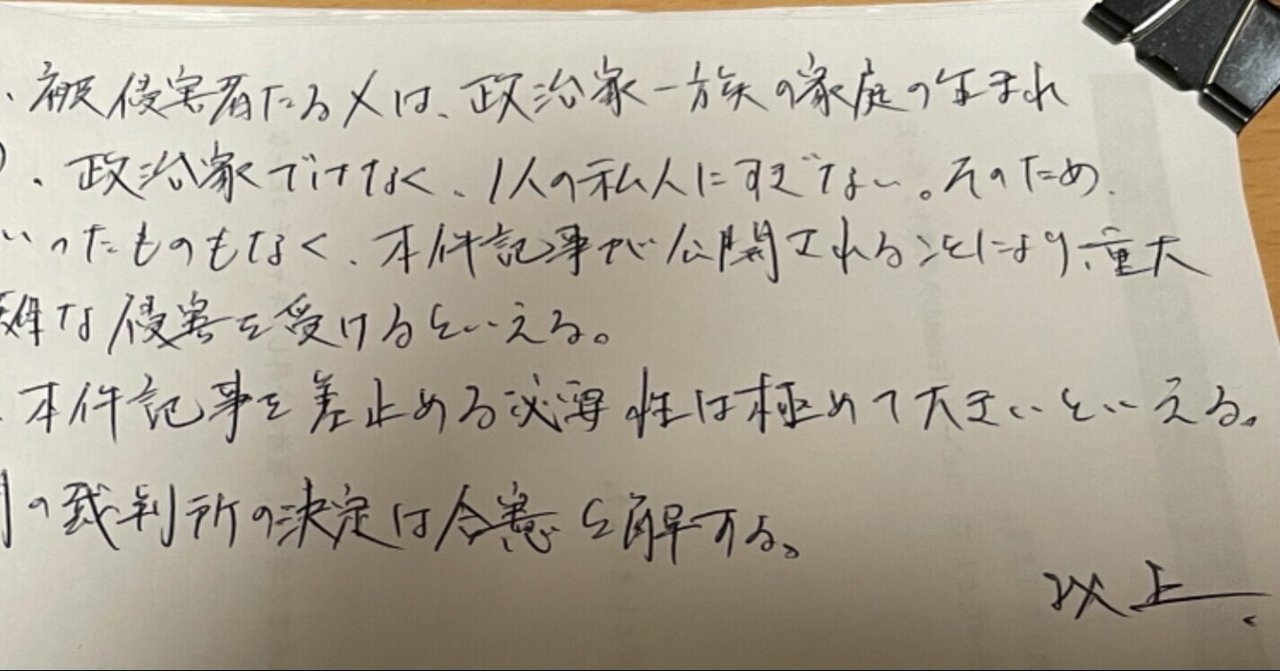 、被侵害者たるXは、政治家一族の家庭の生まれ
、政治家ではなく、1人の私人にすぎない。そのため、
いったものもなく、本件記事が公開されることにより、重大
な侵害を受けるといえる。
、本件記事を差止める必要性は極めて大きいといえる。
の裁判所の決定は合憲と解する。
以上